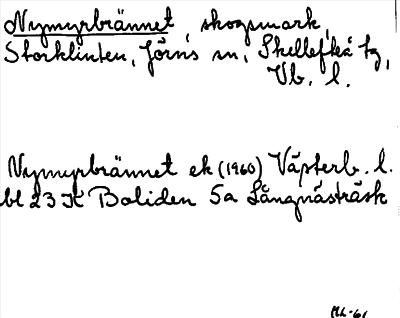 Nymyrbrännet, skogsmark,
Storklinten, Jörns sn, Skellefteå tg,
Vb. l.
Nymyrbrännet ek (1960) Västerb. l.
bl 23 K Boliden 5a Långnästräsk